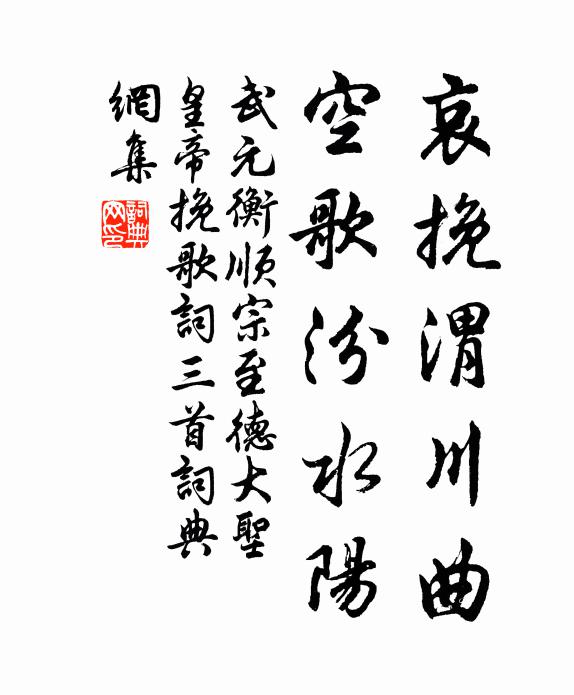 哀挽渭川曲
空歌汾水陽
武元衡順宗至德大聖
皇帝挽歌詞三首詞典
網集
詞典
网印